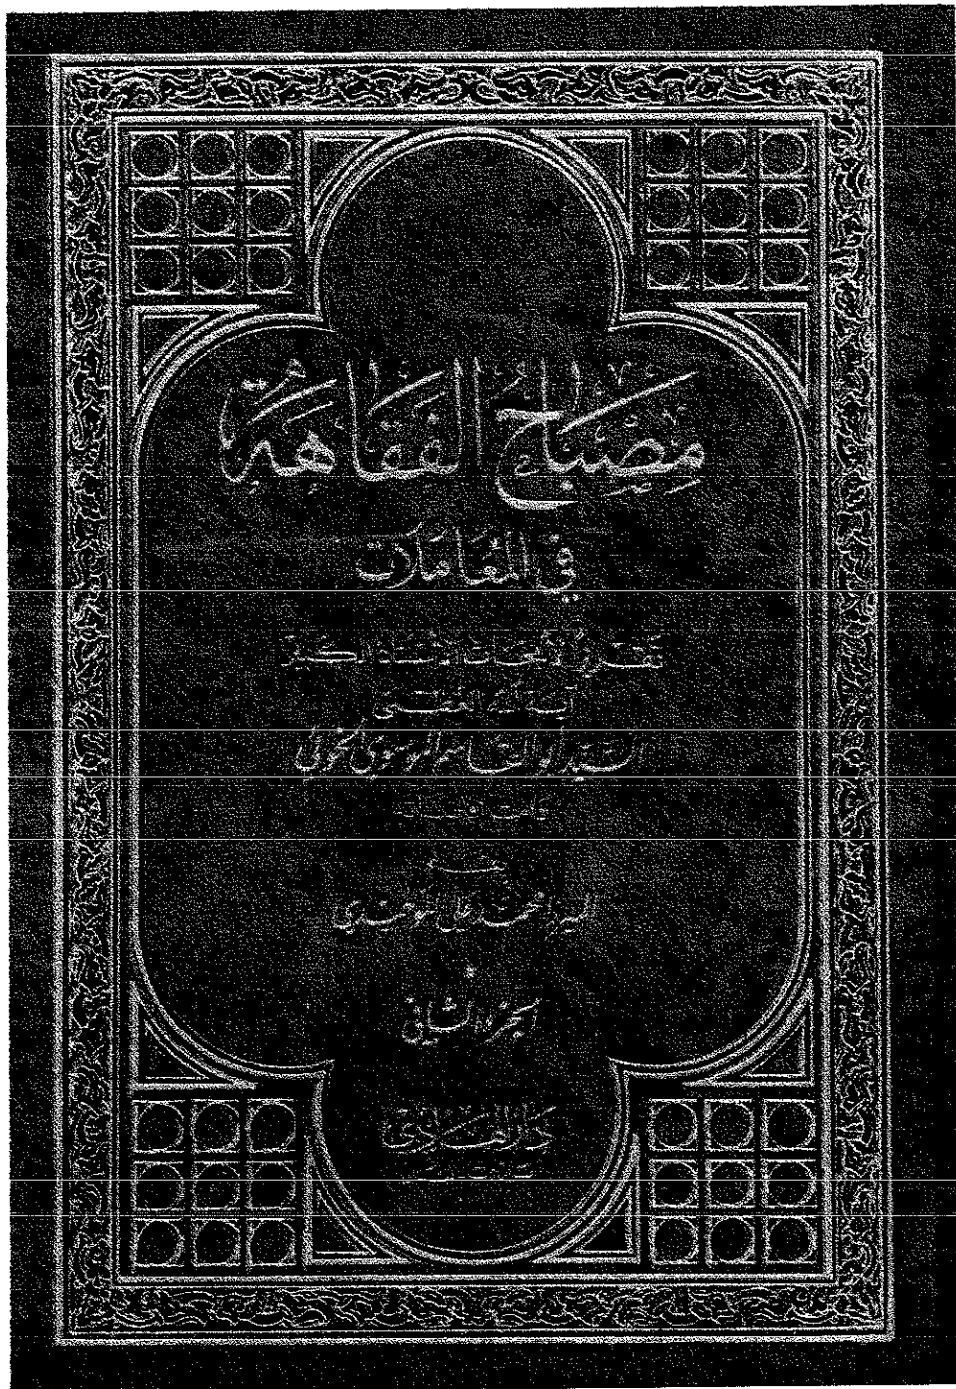 مِصْبَاحُ الْفَقَاهَةِ
في المعاملات
تقرير لأبحاث الأستاذ الأكبر
آية الله العظمى
السيد أبو القاسم الموسوي الخوئي
الميرزا محمد علي التوحيدي
الجزء الثاني
دار الهادي